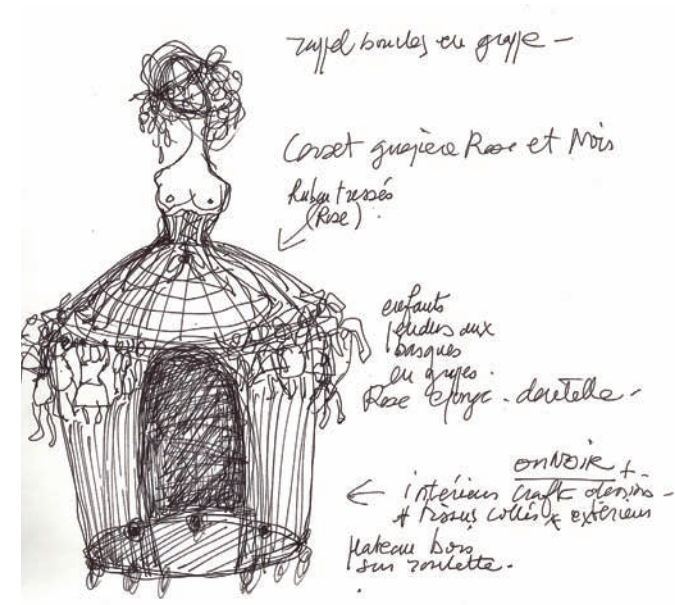 rappel boucles en grappe -
Corset guêpière Rose et Noir
Ruban tressés
(Rose).
enfants
pendus aux
basques
en grappes.
Rose éponge - dentelle -
ou NOIR +
← intérieur craft dessins -
+ tissus collés extérieur
plateau bois
sur roulette.